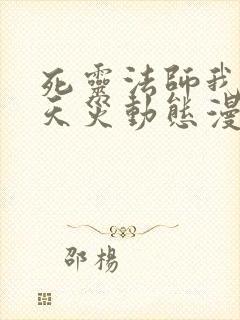 死靈法師我
天災動態漫
邵楊